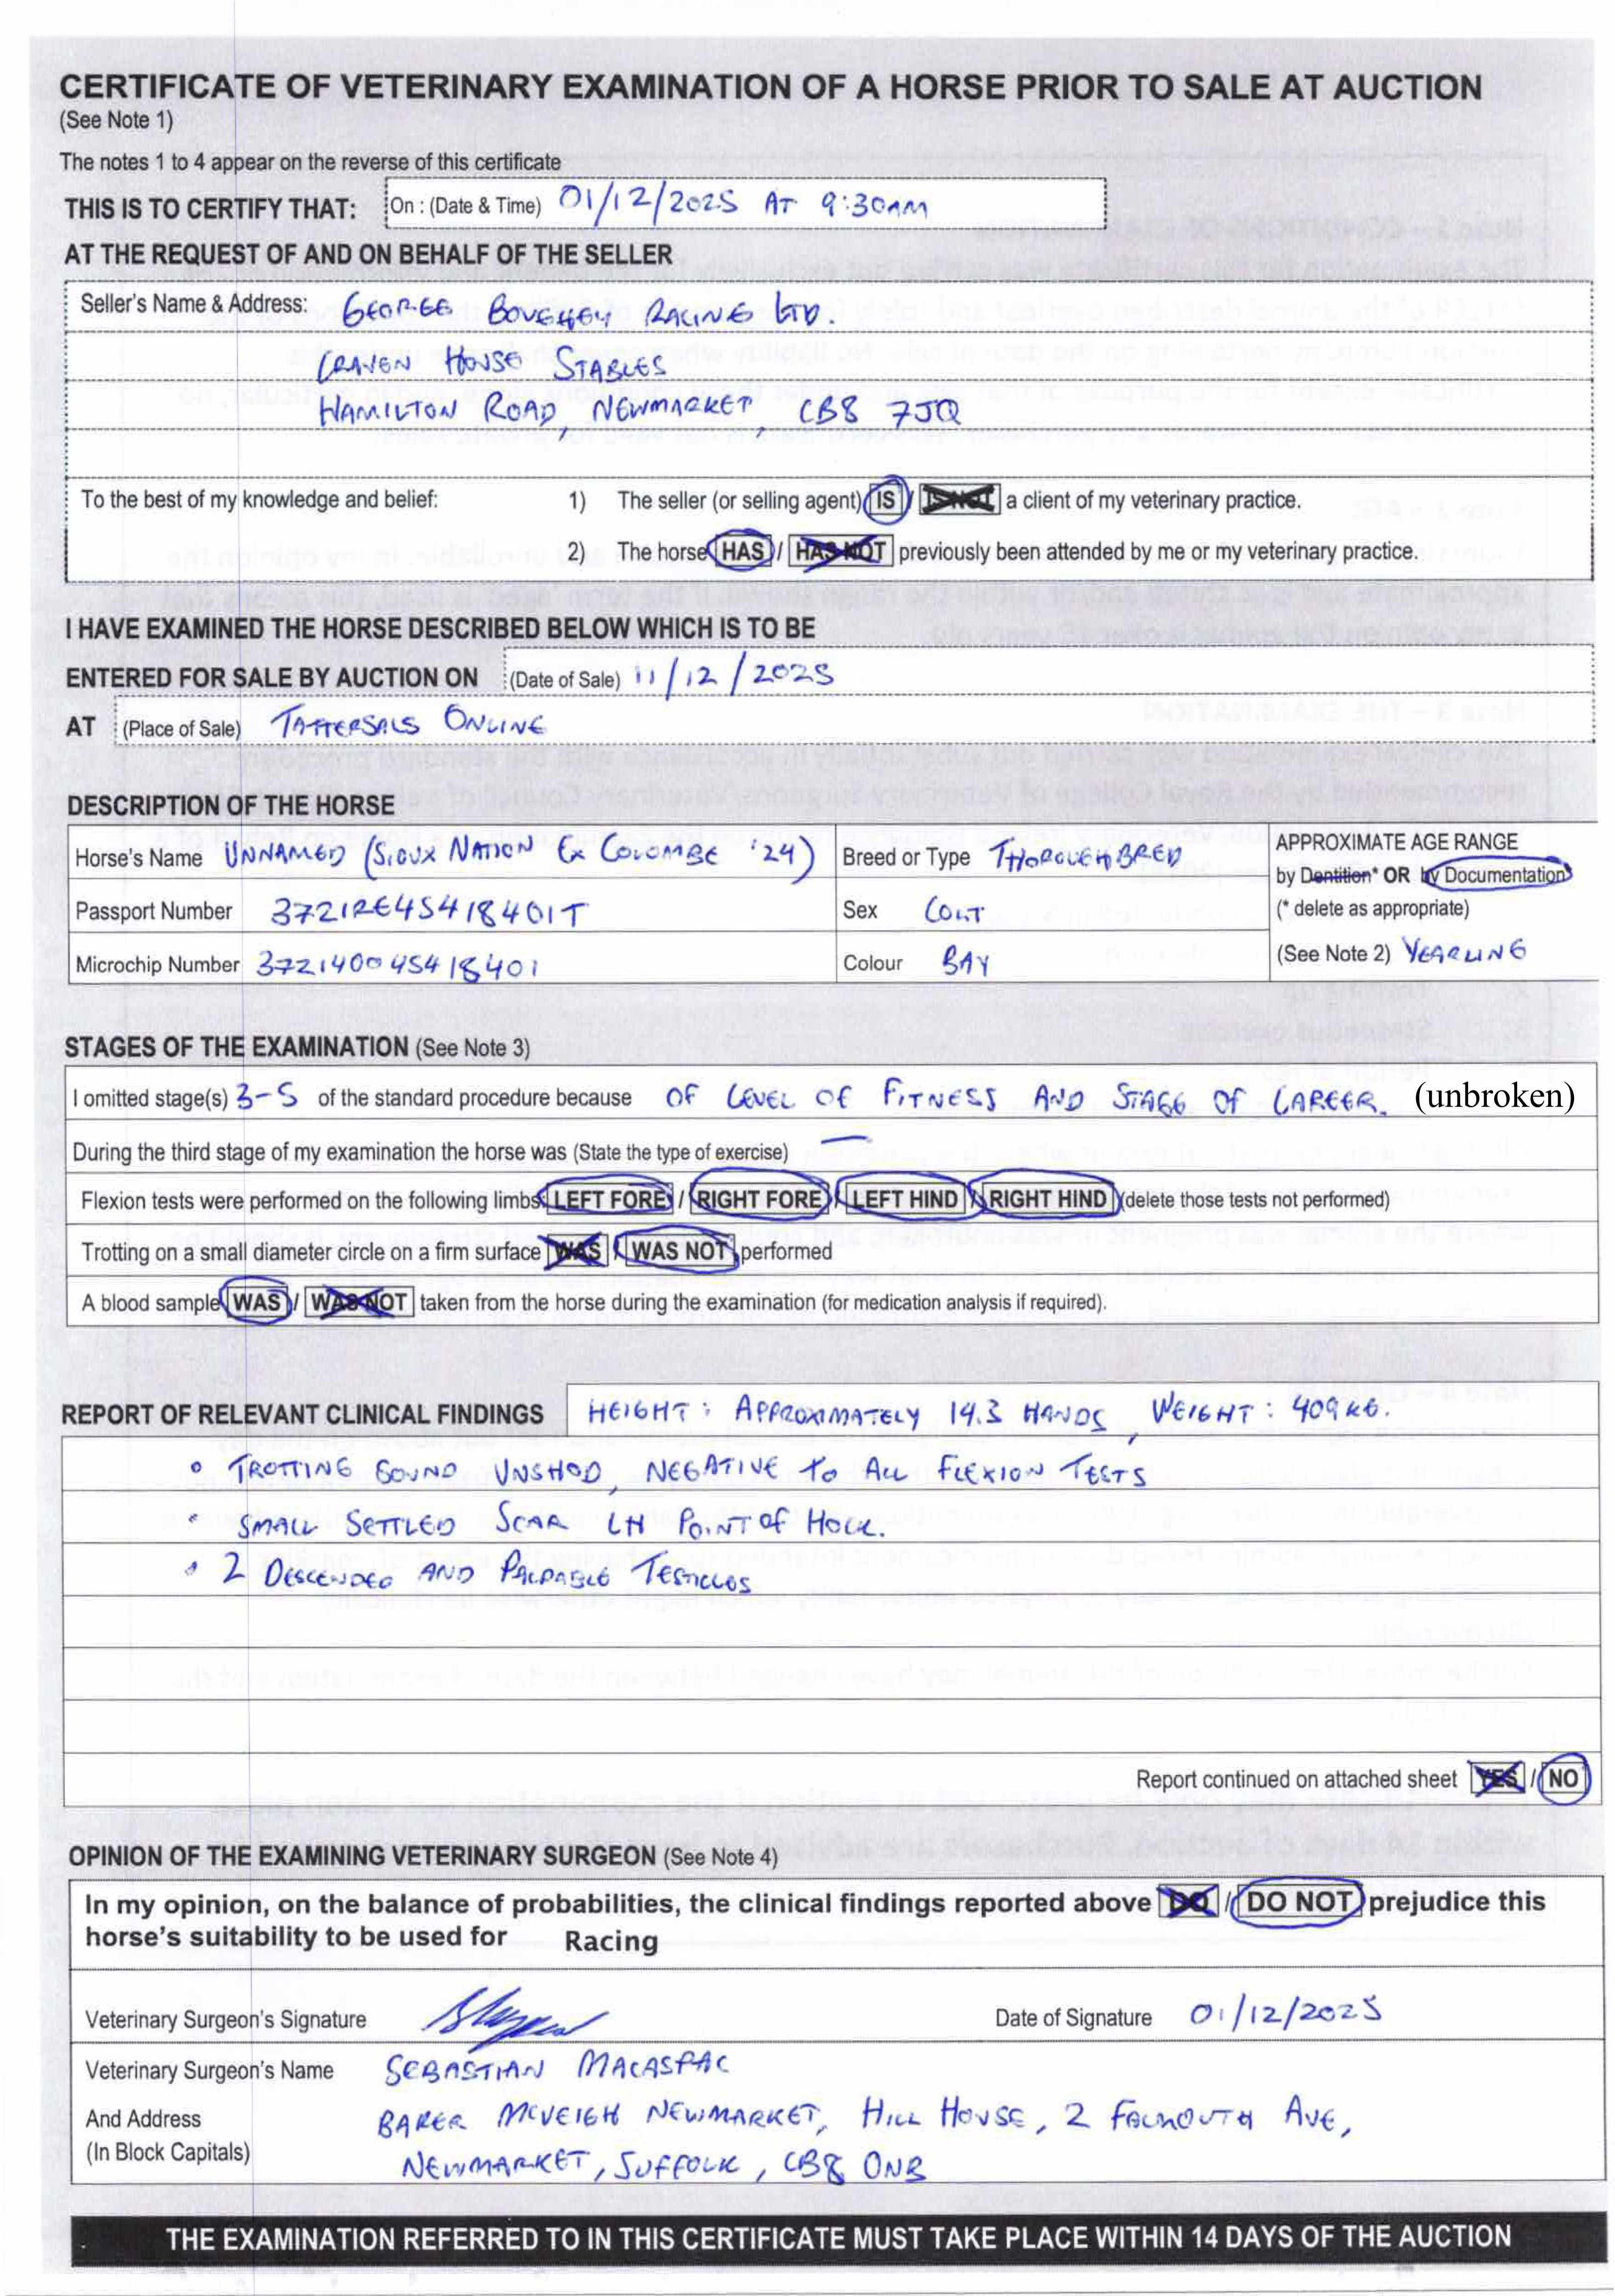 CERTIFICATE OF VETERINARY EXAMINATION OF A HORSE PRIOR TO SALE AT AUCTION
(See Note 1)
The notes 1 to 4 appear on the reverse of this certificate
THIS IS TO CERTIFY THAT: On : (Date & Time) 01/12/2025 AT 9:30AM
AT THE REQUEST OF AND ON BEHALF OF THE SELLER
Seller's Name & Address: GEORGE BOUGHEY RACING LTD.
CRAVEN HOUSE STABLES
HAMILTON ROAD, NEWMARKET, CB8 7JQ
To the best of my knowledge and belief: 1) The seller (or selling agent) IS / IS NOT a client of my veterinary practice.
2) The horse HAS / HAS NOT previously been attended by me or my veterinary practice.
I HAVE EXAMINED THE HORSE DESCRIBED BELOW WHICH IS TO BE
ENTERED FOR SALE BY AUCTION ON (Date of Sale) 11/12/2025
AT (Place of Sale) TATTERSALS ONLINE
DESCRIPTION OF THE HORSE
Horse's Name UNNAMED (SIOUX NATION EX COLOMBE '24) Breed or Type THOROUGHBRED APPROXIMATE AGE RANGE
by Dentition* OR by Documentation*
Passport Number 3721RE45418401T Sex COLT (* delete as appropriate)
Microchip Number 372140045418401 Colour BAY (See Note 2) YEARLING
STAGES OF THE EXAMINATION (See Note 3)
I omitted stage(s) 3-5 of the standard procedure because OF LEVEL OF FITNESS AND STAGE OF CAREER. (unbroken)
During the third stage of my examination the horse was (State the type of exercise) —
Flexion tests were performed on the following limbs: LEFT FORE / RIGHT FORE / LEFT HIND / RIGHT HIND (delete those tests not performed)
Trotting on a small diameter circle on a firm surface WAS / WAS NOT performed
A blood sample WAS / WAS NOT taken from the horse during the examination (for medication analysis if required).
REPORT OF RELEVANT CLINICAL FINDINGS HEIGHT: APPROXIMATELY 14.3 HANDS, WEIGHT: 409KG.
• TROTTING SOUND UNSHOD, NEGATIVE TO ALL FLEXION TESTS
• SMALL SETTLED SCAR LH POINT OF HOCK.
• 2 DESCENDED AND PALPABLE TESTICLES
Report continued on attached sheet YES / NO
OPINION OF THE EXAMINING VETERINARY SURGEON (See Note 4)
In my opinion, on the balance of probabilities, the clinical findings reported above DO / DO NOT prejudice this
horse's suitability to be used for Racing
Veterinary Surgeon's Signature Date of Signature 01/12/2025
Veterinary Surgeon's Name SEBASTIAN MACASPAC
And Address BAKER MCVEIGH NEWMARKET, HILL HOUSE, 2 FALMOUTH AVE,
(In Block Capitals) NEWMARKET, SUFFOLK, CB8 0NB
THE EXAMINATION REFERRED TO IN THIS CERTIFICATE MUST TAKE PLACE WITHIN 14 DAYS OF THE AUCTION